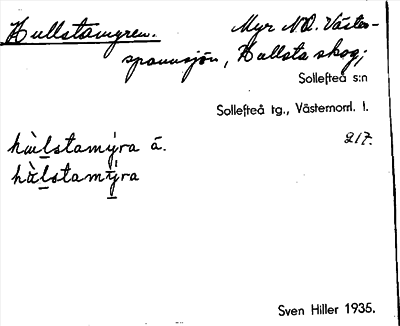 Hullstamyren. Myr N.O. Väster-
spannsjön, Hullsta skog;
Sollefteå s:n
Sollefteå tg., Västernorrl. l.
hùlstamýra ä. 217.
hùlstamýra
Sven Hiller 1935.